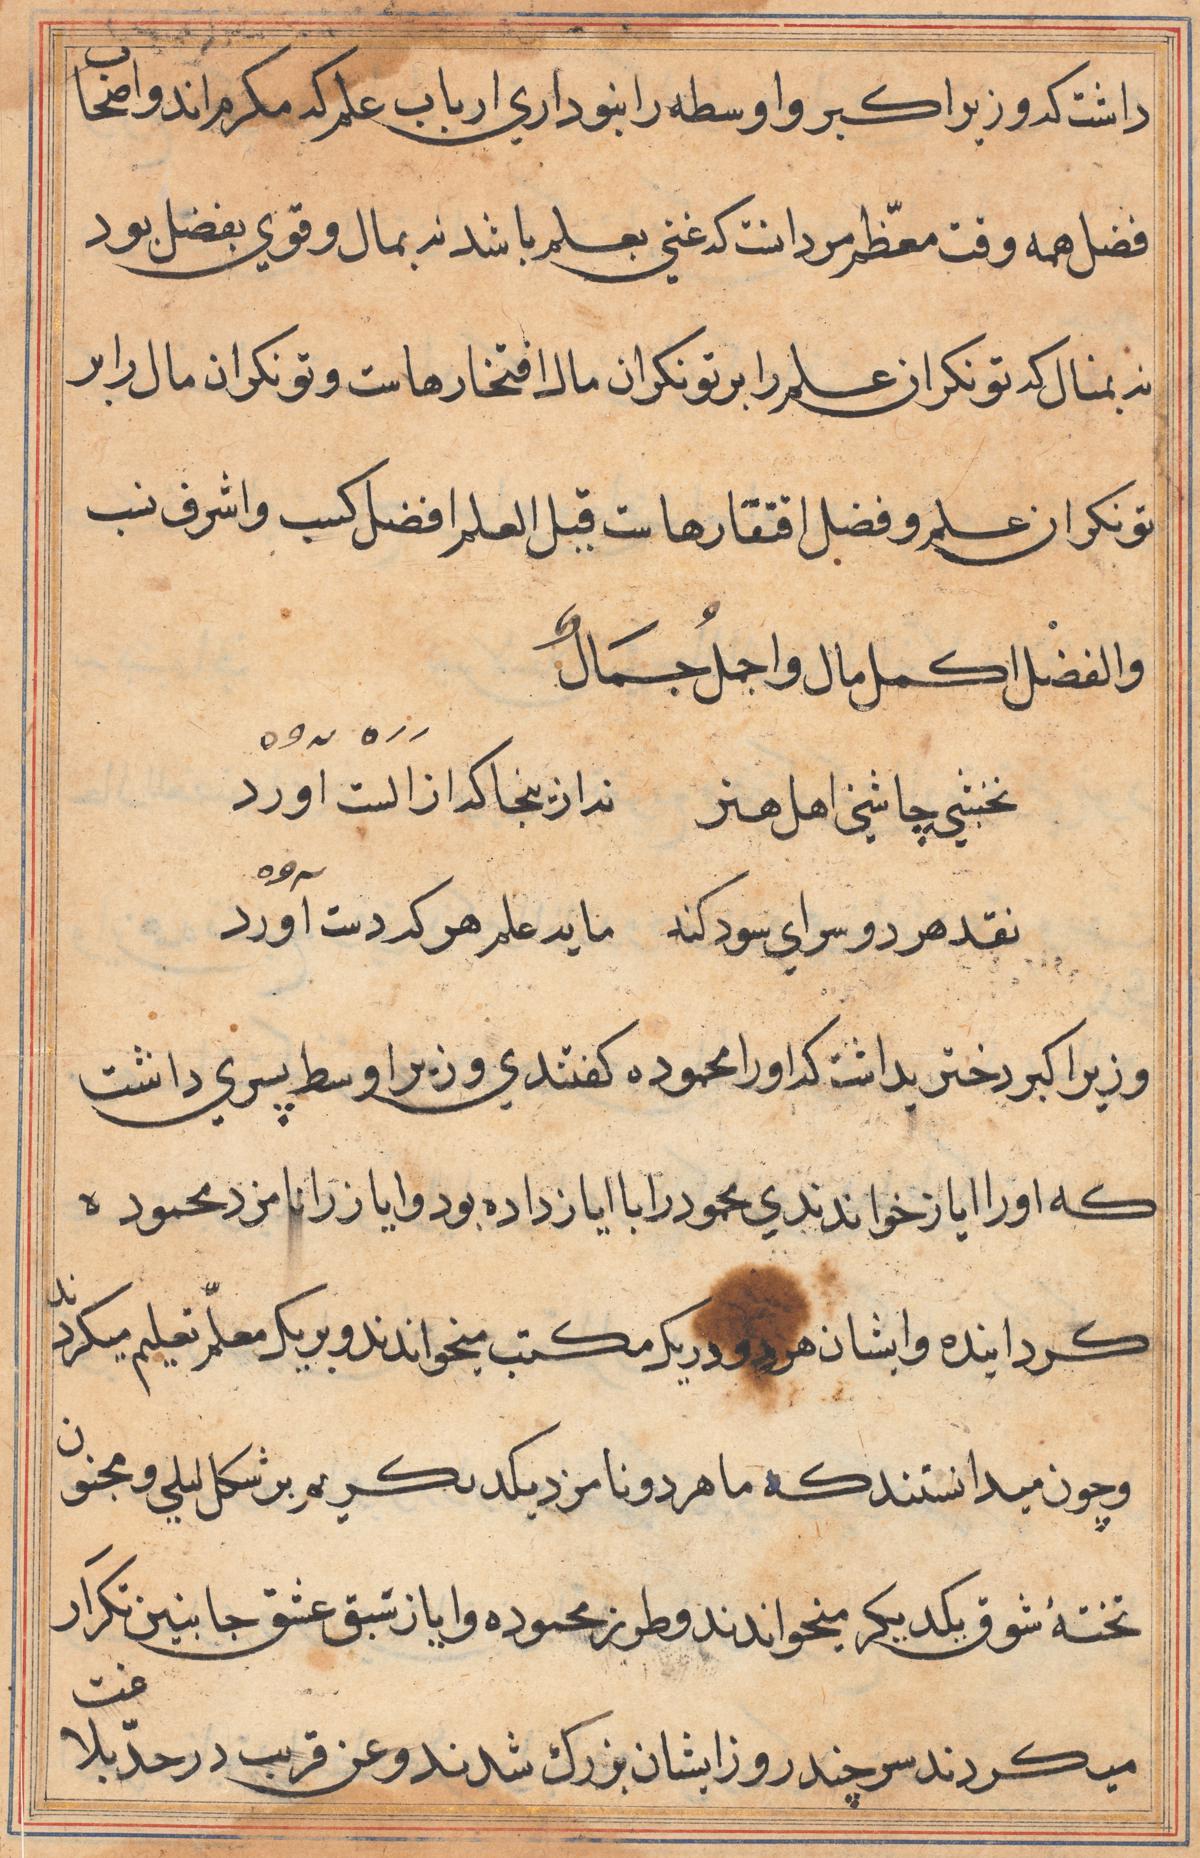 داشت که وزیر اکبر و اوسطه را بنوداري ارباب علم که مکرم اند و اصحاب
فضل همه وقت معظّم مرد انست که غني بعلم باشد نه بمال و قوي بفضل بود
نه بمنال که تونکران علم را بر تونکران مال افتخارهاست و تونکران مال را بر
تونکران علم و فضل افتقارهاست قیل العلم افضل کسب و اشرف نسب
والفضْل اکمل مال و اجملُ جَمَالٌ
نخشبي چاشني اهل هنر نه ازینجا که از الست اورد
نقد هر دو سراي سود کند مایه علم هر که دست آورد
وزیر اکبر دختر یداشت که اورا محموده کفتندي وزیر اوسط پسري داشت
که اورا ایاز خواندندي محمود را با ایاز داده بود و ایاز را نامزد محموده
کردانیده و ایشان هر دو در یک مکتب میخواندند و بر یک معلّم تعلیم میکردند
و چون میدانستند که ما هر دو نامزد یکدیکریم بر شکل لیلي و مجنون
تختهٔ شوق یکدیکر میخواندند و طرز محموده و ایاز سبق عشق جانبین تکرار
میکردند سر چند روز ایشان بزرک شدند و عن قریب در حدّ بلاغت